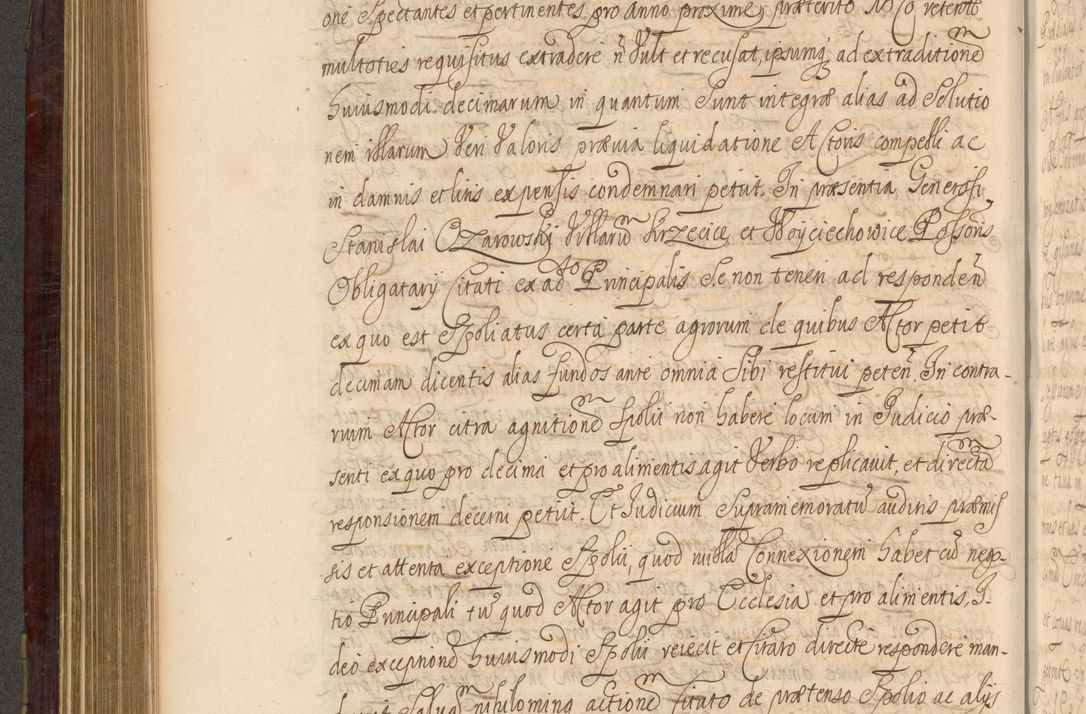 one spectantes et pertinentes pro anno proxime præterito retento
multoties requisitus extradere ñ vult et recusat, ipsumq ad extraditionē
huiusmodi decimarum in quantum sunt integræ alias ad solutio
nem illarum veri valoris prævia liquidatione Actoris compelli ac
in damnis et litis expensis condemnari petiit. In præsentia Generosi
Stanislai Ozarowskj Villarū Krzecice et Woÿciechowice Possoris
Obligatarÿ Citati ex adso Principalis se non teneri ad respondēn
ex quo est Spoliatus certa parte agrorum de quibus Actor petit
decimam dicentis alias fundos ante omnia sibi restitui petēn. In contra-
rium Actor citra agnitionē spolii non habere locum in Judicio præ-
senti ex quo pro decima et pro alimentis agit verbo replicavit, et directā
responsionem decerni petiit. Et Judicium supramemoratū auditis præmis
sis et attenta exceptione Spolii, quod nullā Connexionem habet cū nego-
tio Principali tū quod Actor agit pro Ecclesia et pro alimentis, I-
deo exceptionē huiusmodi Spolii reiecit et Citato directe respondere man-
Salva nihilominq actione Citato de prætenso Spolio ac alÿs